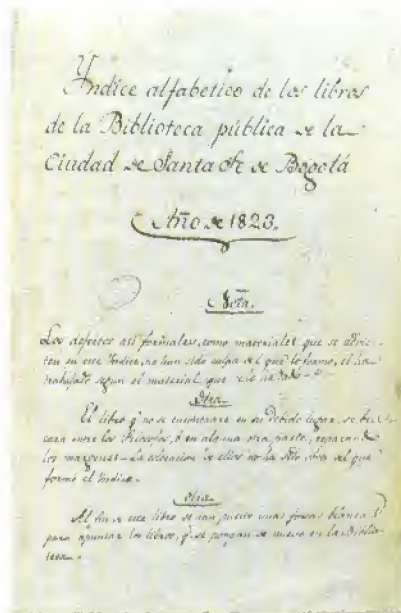 Yndice alfabetico de los libros
de la Biblioteca pública de la
Ciudad de Santa Fe de Bogotá
Año de 1823.
Nota.
Los defectos así formales, como materiales que se advier-
ten en este Yndice, no han sido culpa del que lo formó, el ha
trabajado segun el material que se le ha dado.
Otra
El libro q.e no se encontrare en su debido lugar, se bus-
cará entre los Filosofos, ó en alguna otra parte,
los margenes. La colocacion de ellos no ha sido obra del que
formó el Yndice.
Otra
Al fin de este libro se han puesto unas fojas blancas
para apuntar los libros, q.e se pongan de nuevo en la Biblio-
teca.